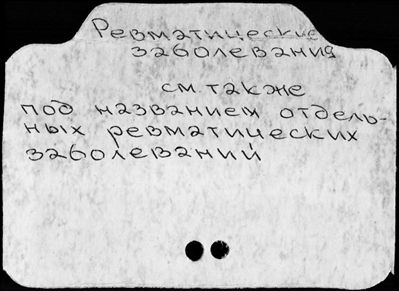 Ревматические
заболевания
см. также
под названием отдель-
ных ревматических
заболеваний